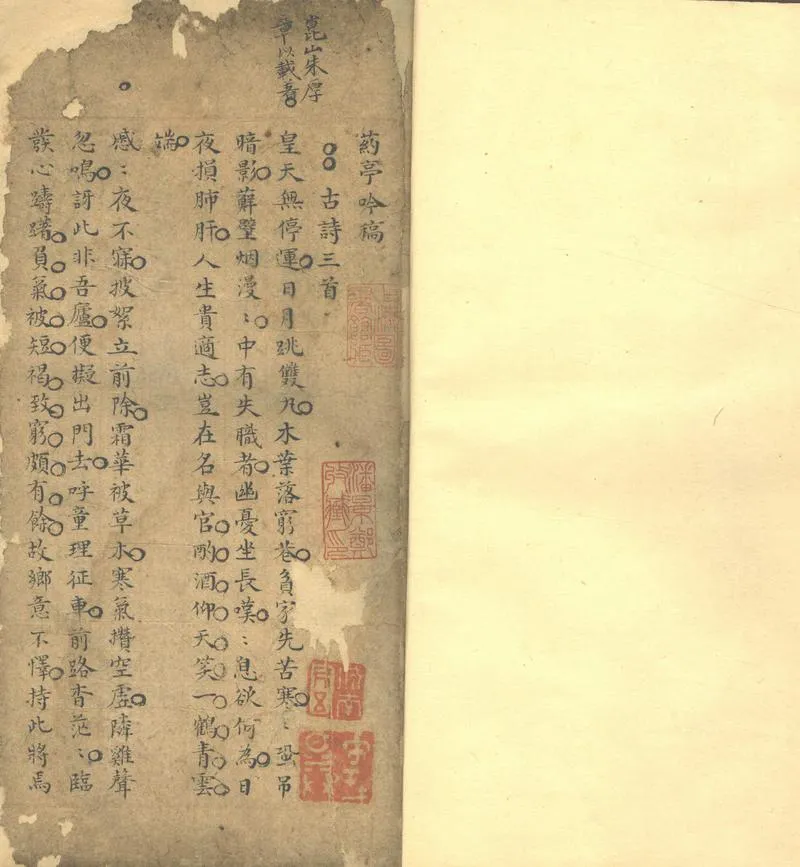 崑山朱厚
章以載看
葯亭吟稿
古詩三首
皇天無停運日月跳雙丸木葉落窮巷貧家先苦寒：蛩吊
暗影薜壁烟漫：中有失職者幽憂坐長嘆：息欲何為日
夜損肺肝人生貴適志豈在名與官酌酒仰天笑一鶴青雲
端
慼：夜不寐披絮立前除霜華被草木寒氣攢空虛隣雞聲
忽鳴訝此非吾廬便擬出門去呼童理征車前路杳茫：臨
發心躊躇負氣被短褐致窮頗有餘故鄉意不懌持此將焉
上海圖
書館藏
潘景鄭